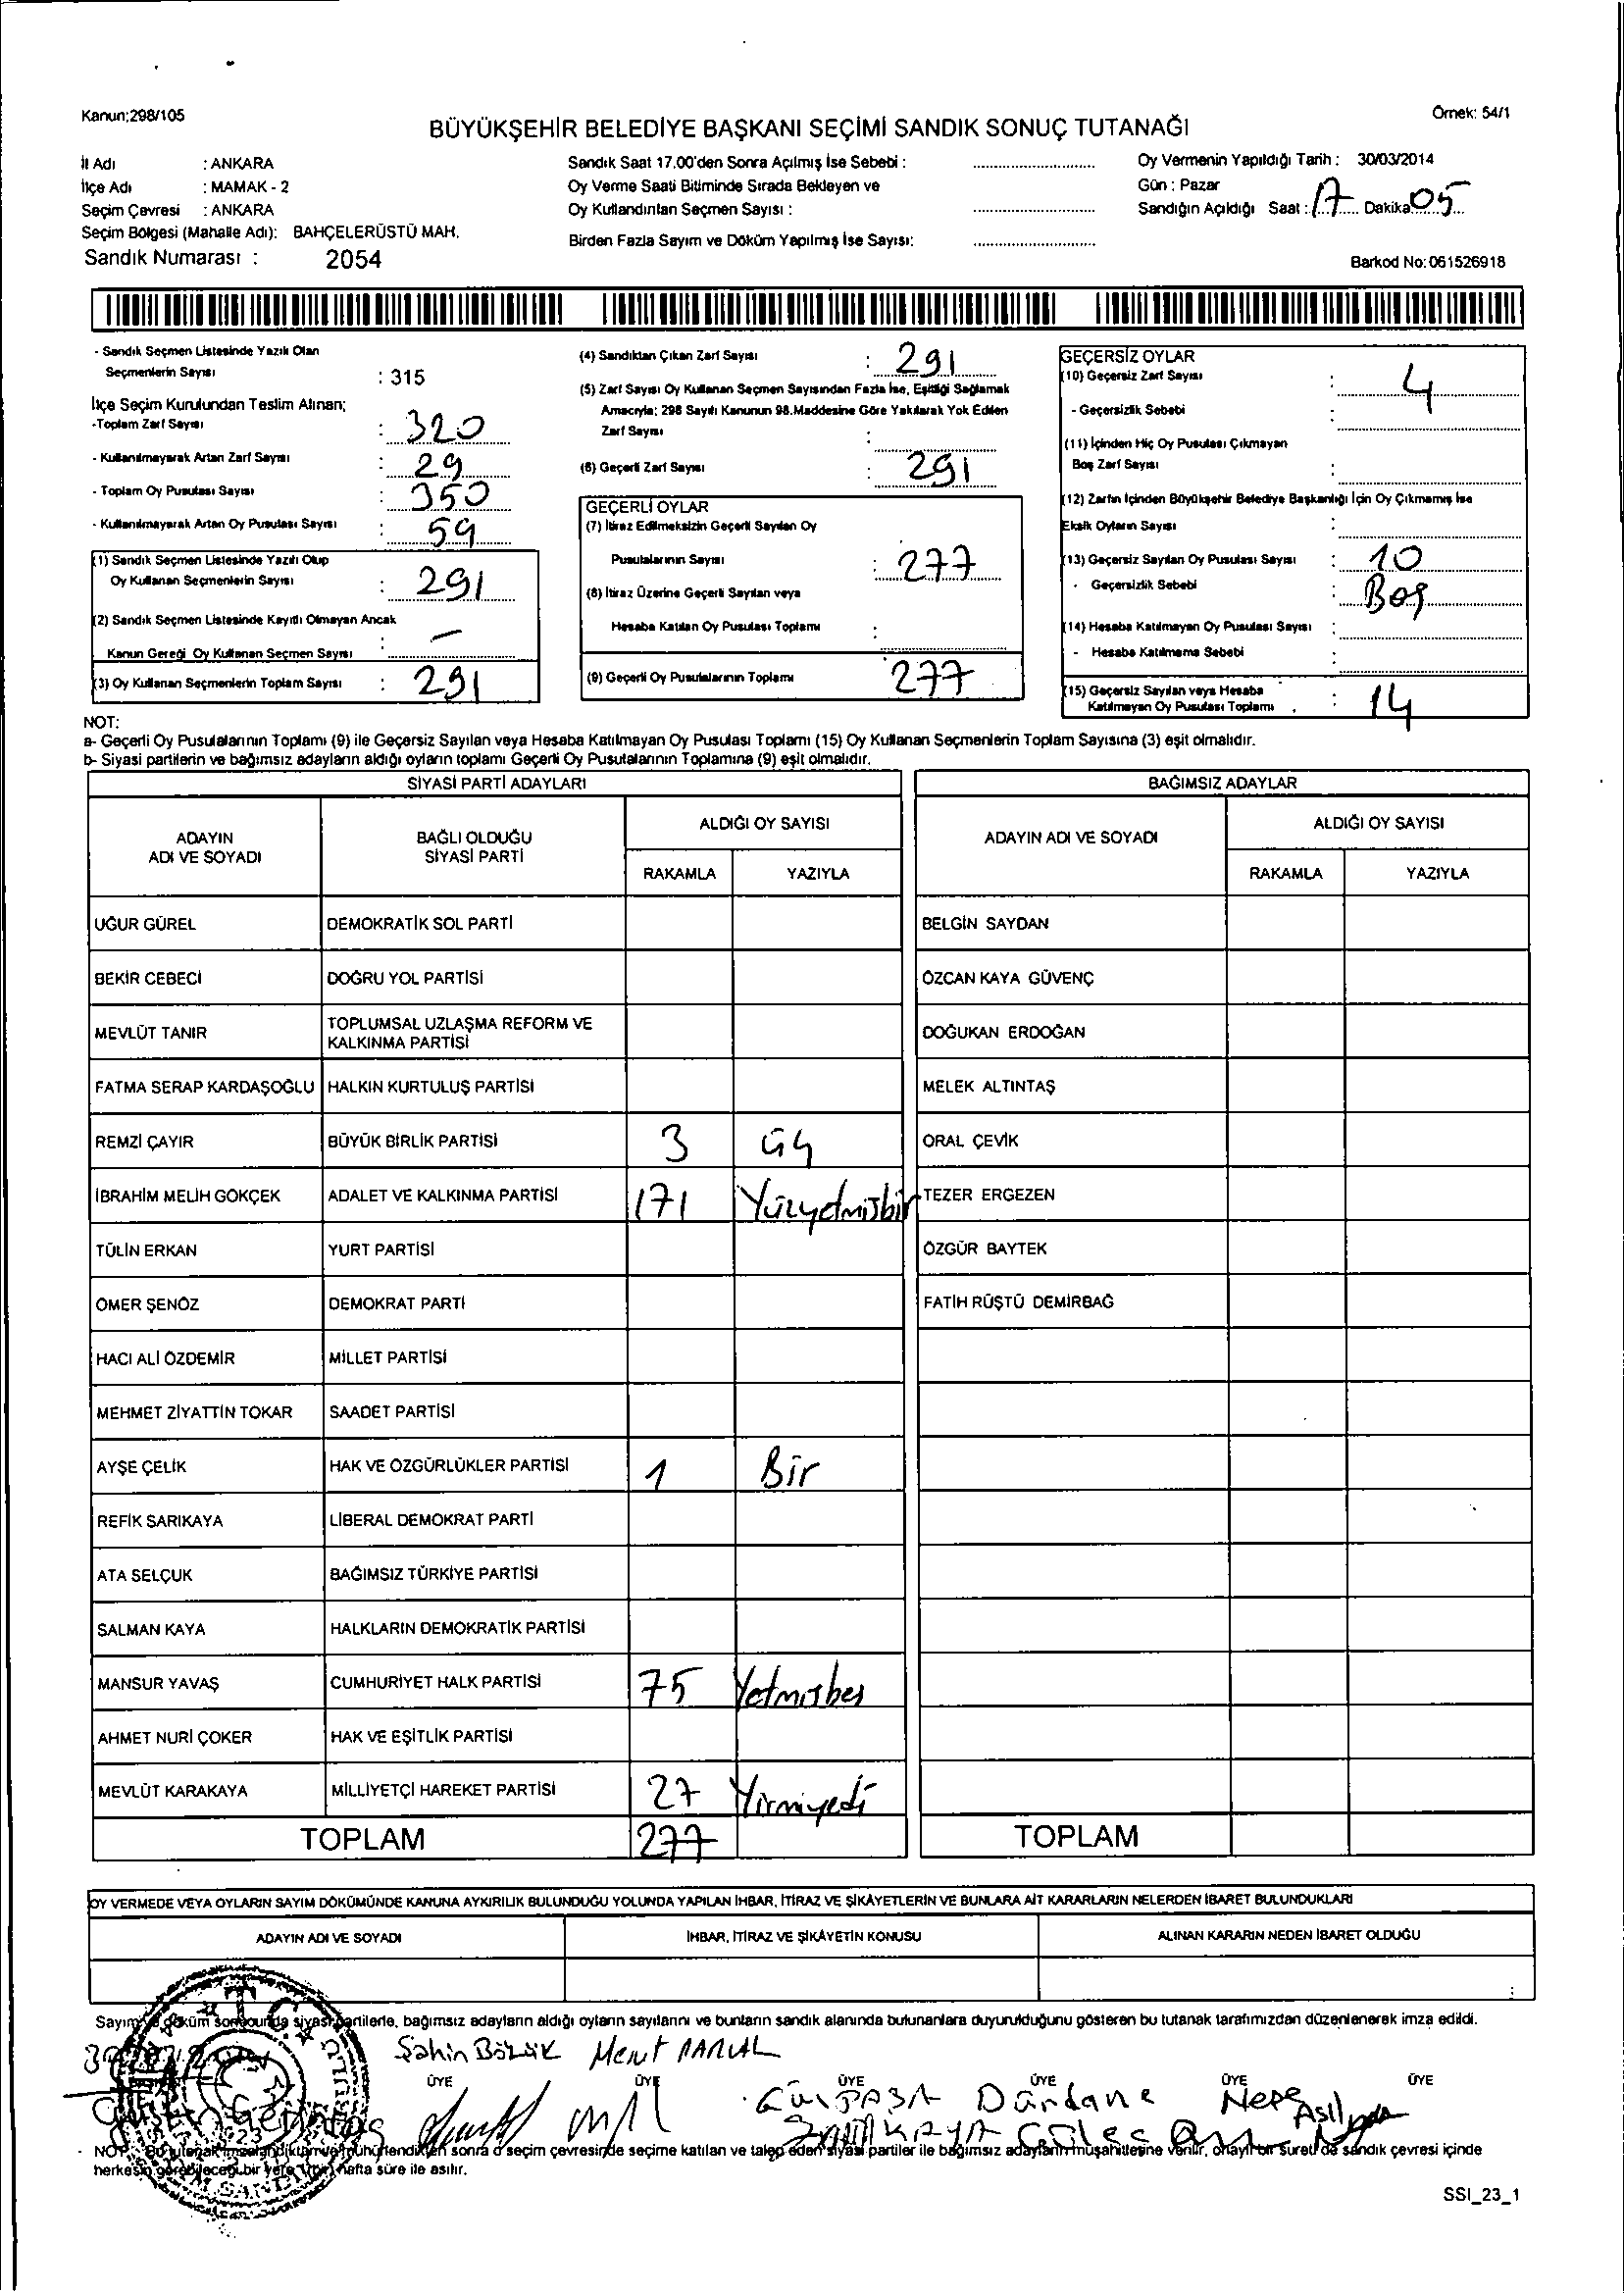 Kanun:298/105
Örnek: 54/1
BÜYÜKŞEHİR BELEDİYE BAŞKANI SEÇİMİ SANDIK SONUÇ TUTANAĞI
İl Adı : ANKARA
İlçe Adı : MAMAK - 2
Seçim Çevresi : ANKARA
Seçim Bölgesi (Mahalle Adı): BAHÇELERÜSTÜ MAH.
Sandık Numarası : 2054
Sandık Saat 17.00'den Sonra Açılmış İse Sebebi :
Oy Verme Saati Bitiminde Sırada Bekleyen ve
Oy Kullandırılan Seçmen Sayısı :
Birden Fazla Sayım ve Döküm Yapılmış İse Sayısı:
Oy Vermenin Yapıldığı Tarih : 30/03/2014
Gün : Pazar
Sandığın Açıldığı Saat : 17 Dakika 05
Barkod No: 061526918
- Sandık Seçmen Listesinde Yazılı Olan
Seçmenlerin Sayısı : 315
İlçe Seçim Kurulundan Teslim Alınan;
-Toplam Zarf Sayısı : 320
- Kullanılmayarak Artan Zarf Sayısı : 29
- Toplam Oy Pusulası Sayısı : 350
- Kullanılmayarak Artan Oy Pusulası Sayısı : 59
(1) Sandık Seçmen Listesinde Yazılı Olup
Oy Kullanan Seçmenlerin Sayısı : 291
(2) Sandık Seçmen Listesinde Kayıtlı Olmayan Ancak
Kanun Gereği Oy Kullanan Seçmen Sayısı : —
(3) Oy Kullanan Seçmenlerin Toplam Sayısı : 291
(4) Sandıktan Çıkan Zarf Sayısı : 291
(5) Zarf Sayısı Oy Kullanan Seçmen Sayısından Fazla İse, Eşitliği Sağlamak
Amacıyla; 298 Sayılı Kanunun 98.Maddesine Göre Yakılarak Yok Edilen
Zarf Sayısı :
(6) Geçerli Zarf Sayısı : 291
GEÇERLİ OYLAR
(7) İtiraz Edilmeksizin Geçerli Sayılan Oy
Pusulalarının Sayısı : 277
(8) İtiraz Üzerine Geçerli Sayılan veya
Hesaba Katılan Oy Pusulası Toplamı :
(9) Geçerli Oy Pusulalarının Toplamı 277
GEÇERSİZ OYLAR
(10) Geçersiz Zarf Sayısı : 4
- Geçersizlik Sebebi :
(11) İçinden Hiç Oy Pusulası Çıkmayan
Boş Zarf Sayısı :
(12) Zarfın İçinden Büyükşehir Belediye Başkanlığı İçin Oy Çıkmamış İse
Eksik Oyların Sayısı :
(13) Geçersiz Sayılan Oy Pusulası Sayısı : 10
- Geçersizlik Sebebi : Boş
(14) Hesaba Katılmayan Oy Pusulası Sayısı :
- Hesaba Katılmama Sebebi :
(15) Geçersiz Sayılan veya Hesaba
Katılmayan Oy Pusulası Toplamı : 14
NOT:
a- Geçerli Oy Pusulalarının Toplamı (9) ile Geçersiz Sayılan veya Hesaba Katılmayan Oy Pusulası Toplamı (15) Oy Kullanan Seçmenlerin Toplam Sayısına (3) eşit olmalıdır.
b- Siyasi partilerin ve bağımsız adayların aldığı oyların toplamı Geçerli Oy Pusulalarının Toplamına (9) eşit olmalıdır.
SİYASİ PARTİ ADAYLARI
BAĞIMSIZ ADAYLAR
ADAYIN ADI VE SOYADI
BAĞLI OLDUĞU SİYASİ PARTİ
ALDIĞI OY SAYISI
RAKAMLA YAZIYLA
ADAYIN ADI VE SOYADI
ALDIĞI OY SAYISI
RAKAMLA YAZIYLA
UĞUR GÜREL DEMOKRATİK SOL PARTİ BELGİN SAYDAN
BEKİR CEBECİ DOĞRU YOL PARTİSİ ÖZCAN KAYA GÜVENÇ
MEVLÜT TANIR TOPLUMSAL UZLAŞMA REFORM VE KALKINMA PARTİSİ DOĞUKAN ERDOĞAN
FATMA SERAP KARDAŞOĞLU HALKIN KURTULUŞ PARTİSİ MELEK ALTINTAŞ
REMZİ ÇAYIR BÜYÜK BİRLİK PARTİSİ 3 üç ORAL ÇEVİK
İBRAHİM MELİH GÖKÇEK ADALET VE KALKINMA PARTİSİ 171 Yüzyetmişbir TEZER ERGEZEN
TÜLİN ERKAN YURT PARTİSİ ÖZGÜR BAYTEK
ÖMER ŞENÖZ DEMOKRAT PARTİ FATİH RÜŞTÜ DEMİRBAĞ
HACI ALİ ÖZDEMİR MİLLET PARTİSİ
MEHMET ZİYATTİN TOKAR SAADET PARTİSİ
AYŞE ÇELİK HAK VE ÖZGÜRLÜKLER PARTİSİ 1 Bir
REFİK SARIKAYA LİBERAL DEMOKRAT PARTİ
ATA SELÇUK BAĞIMSIZ TÜRKİYE PARTİSİ
SALMAN KAYA HALKLARIN DEMOKRATİK PARTİSİ
MANSUR YAVAŞ CUMHURİYET HALK PARTİSİ 75 Yetmişbeş
AHMET NURİ ÇÖKER HAK VE EŞİTLİK PARTİSİ
MEVLÜT KARAKAYA MİLLİYETÇİ HAREKET PARTİSİ 27 Yirmiyedi
TOPLAM 277 TOPLAM
OY VERMEDE VEYA OYLARIN SAYIM DÖKÜMÜNDE KANUNA AYKIRILIK BULUNDUĞU YOLUNDA YAPILAN İHBAR, İTİRAZ VE ŞİKÂYETLERİN VE BUNLARA AİT KARARLARIN NELERDEN İBARET BULUNDUKLARI
ADAYIN ADI VE SOYADI İHBAR, İTİRAZ VE ŞİKÂYETİN KONUSU ALINAN KARARIN NEDEN İBARET OLDUĞU
Sayım ve döküm sonucunda siyasi partilerle, bağımsız adayların aldığı oyların sayılarını ve bunların sandık alanında bulunanlara duyurulduğunu gösteren bu tutanak tarafımızdan düzenlenerek imza edildi.
Şahin
ÜYE ÜYE ÜYE ÜYE ÜYE ÜYE
Dürdane
NOT: Bu tutanak imzalandıktan ve mühürlendikten sonra o seçim çevresinde seçime katılan ve talep eden siyasi partiler ile bağımsız adayların müşahitlerine verilir, onaylı bir sureti de sandık çevresi içinde
herkesin görebileceği bir yere 1(bir) hafta süre ile asılır.
SSI_23_1